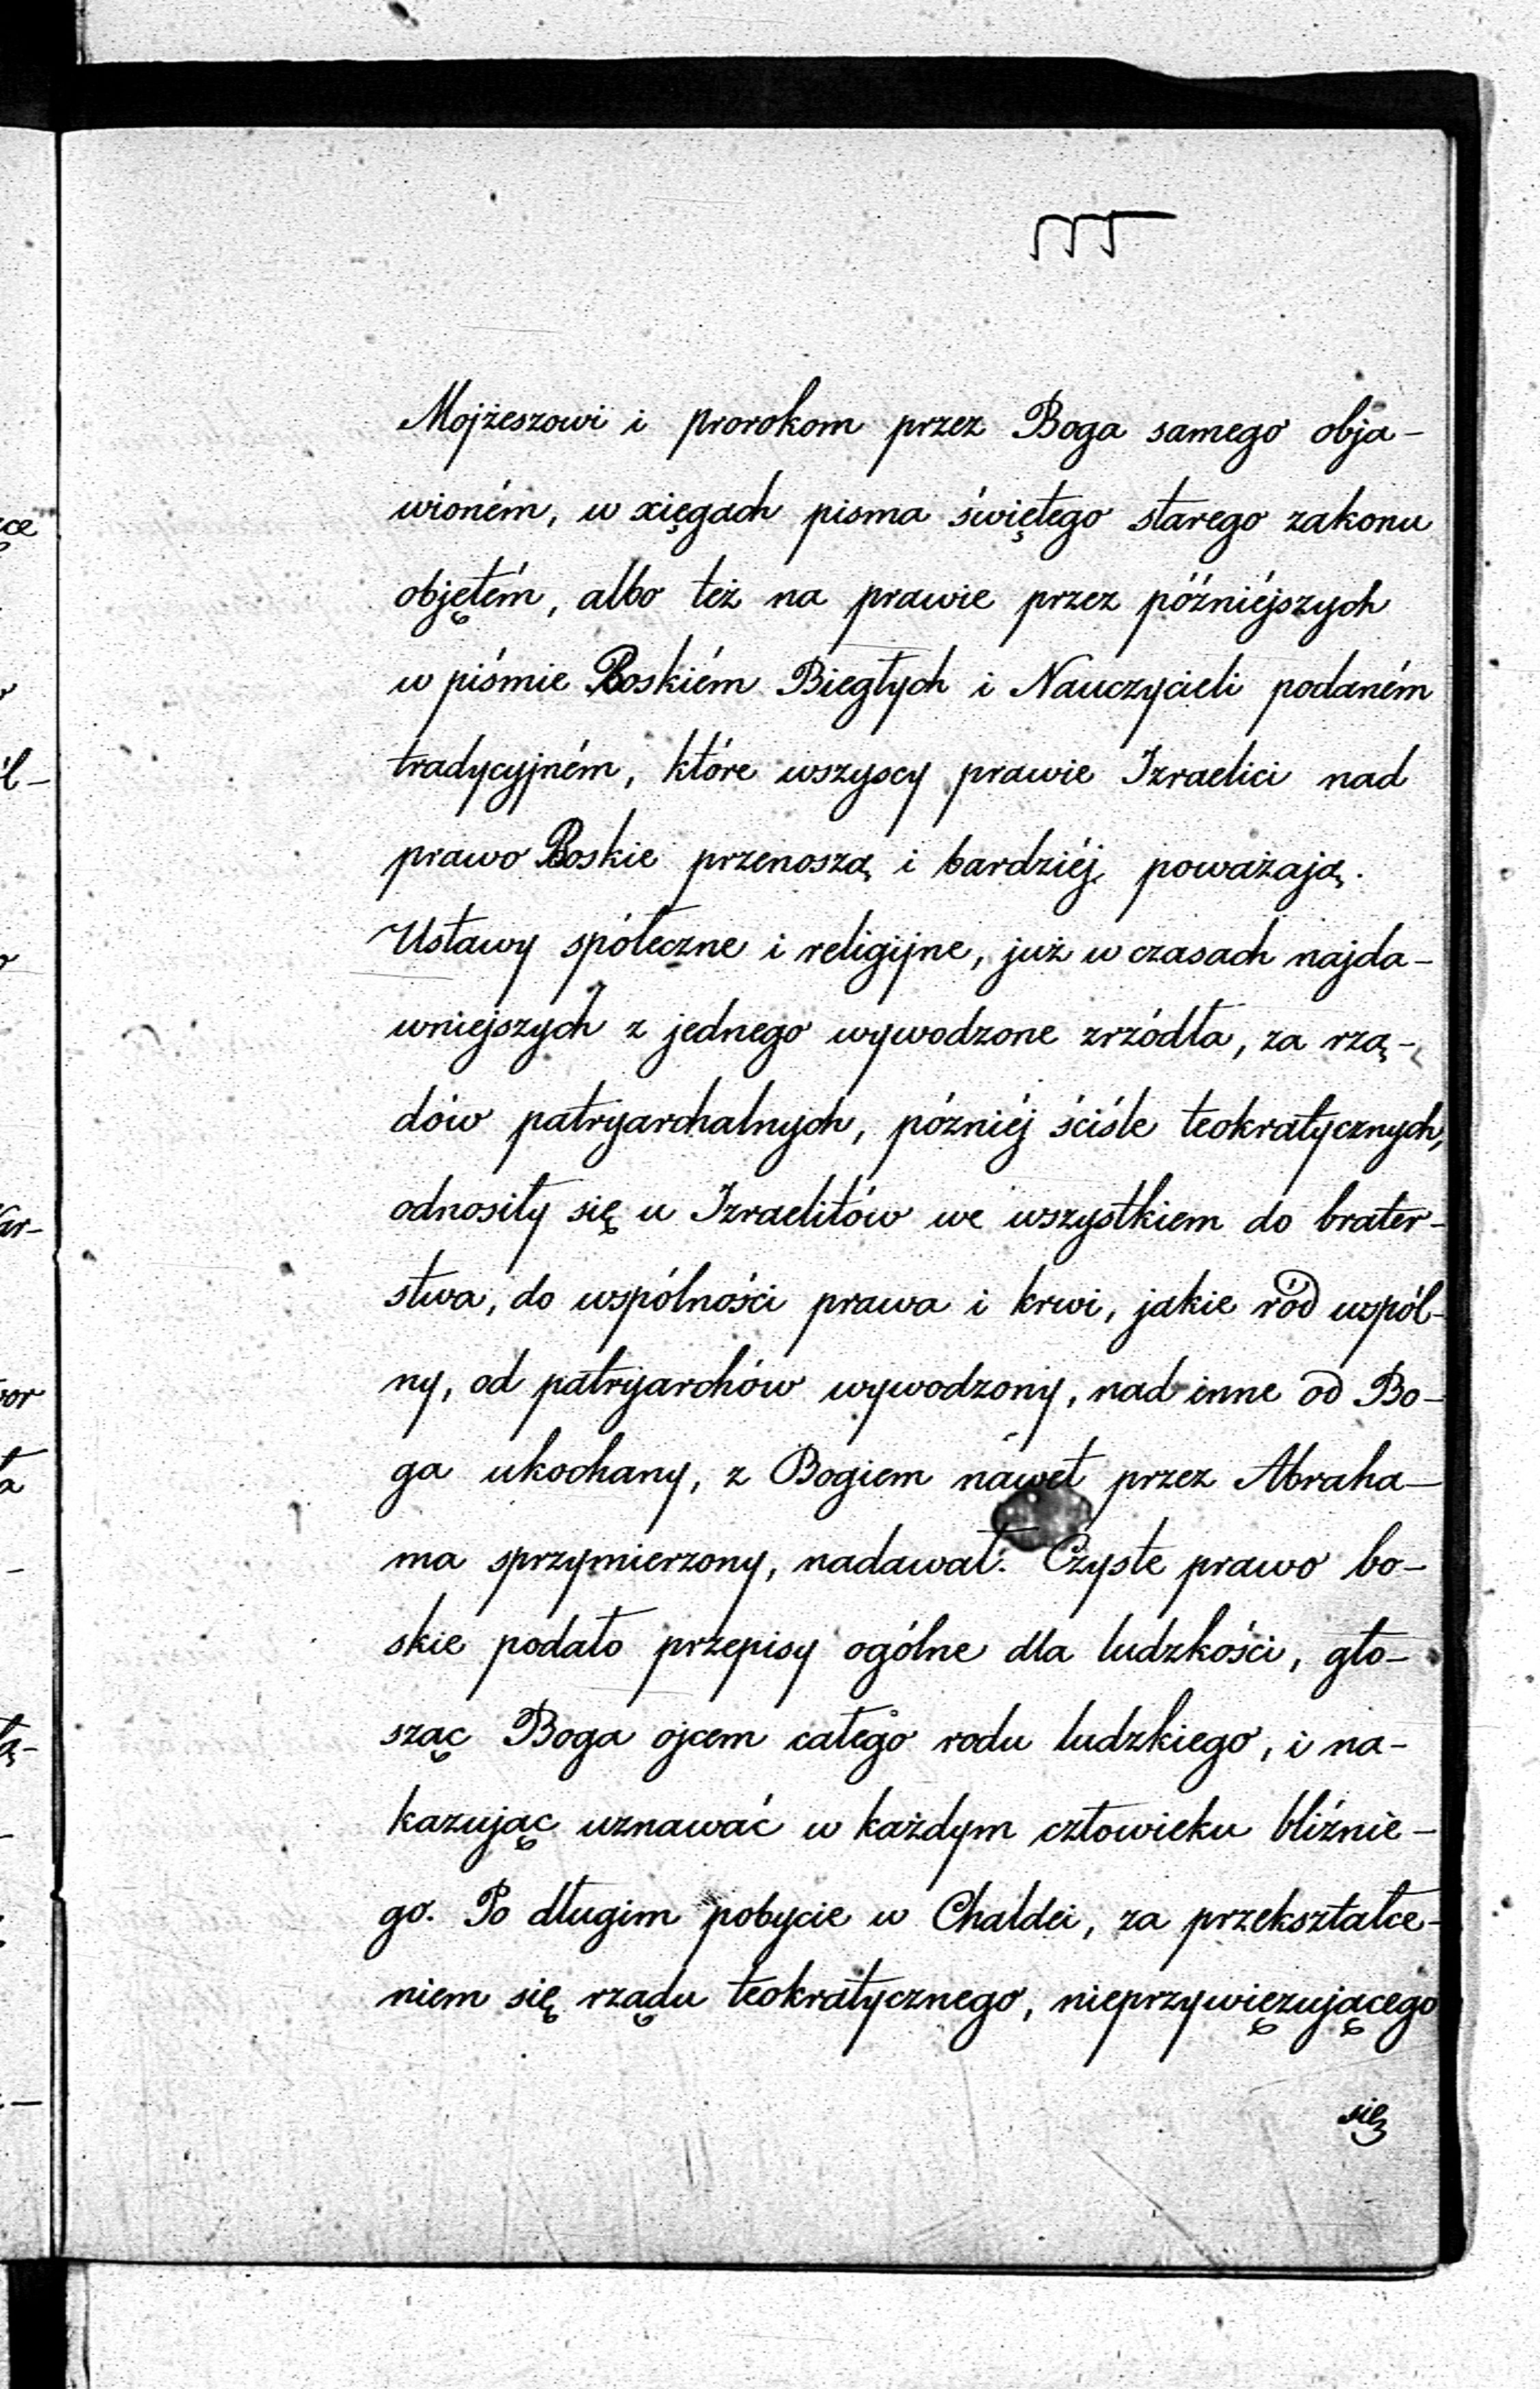 Mojżeszowi i prorokom przez Boga samego obja-
wioném, w xięgach pisma świętego starego zakonu
objętém, albo też na prawie przez późniéjszych
w piśmie Boskiém Biegłych i Nauczycieli podaném
tradycyjném, które wszyscy prawie Izraelici nad
prawo Boskie przenoszą i bardziéj poważają.
Ustawy spółeczne i religijne, już w czasach najda-
wniejszych z jednego wywodzone zrzódła, za rzą-
dów patryarchalnych, pózniéj ściśle teokratycznych,
odnosiły się u Izraelitów we wszystkiem do brater-
stwa, do wspólności prawa i krwi, jakie ród wspól-
ny, od patryarchów wywodzony, nad inne od Bo-
ga ukochany, z Bogiem nawet przez Abraha-
ma sprzymierzony, nadawał. Czyste prawo bo-
skie podało przepisy ogólne dla ludzkości, gło-
sząc Boga ojcem całego rodu ludzkiego, i na-
kazując uznawać w każdym człowieku bliźnie-
go. Po długim pobycie w Chaldei, za przekształce-
niem się rządu teokratycznego, nieprzywięzującego
się